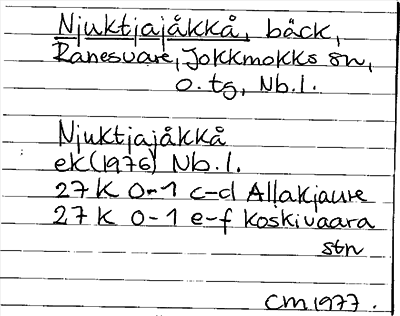 Njuktjajåkkå, bäck,
Ranesvare, Jokkmokks sn,
o. tg, Nb.l.
Njuktjajåkkå
ek(1976) Nb.l.
27K 0-1 c-d Allakjaure
27K 0-1 e-f Koskivaara
stn
CM 1977.